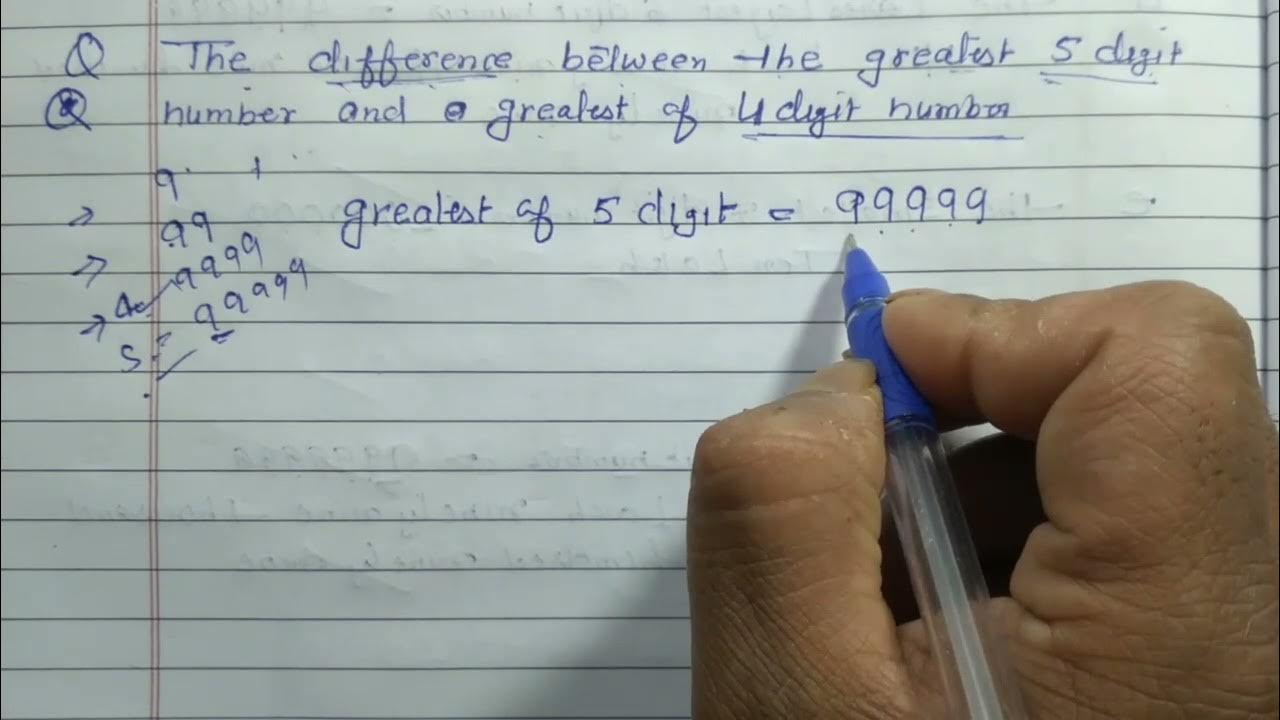 Q The difference between the greatest 5 digit
Q number and a greatest of 4 digit number
9 1
99 greatest of 5 digit = 99999
9999
99999
5